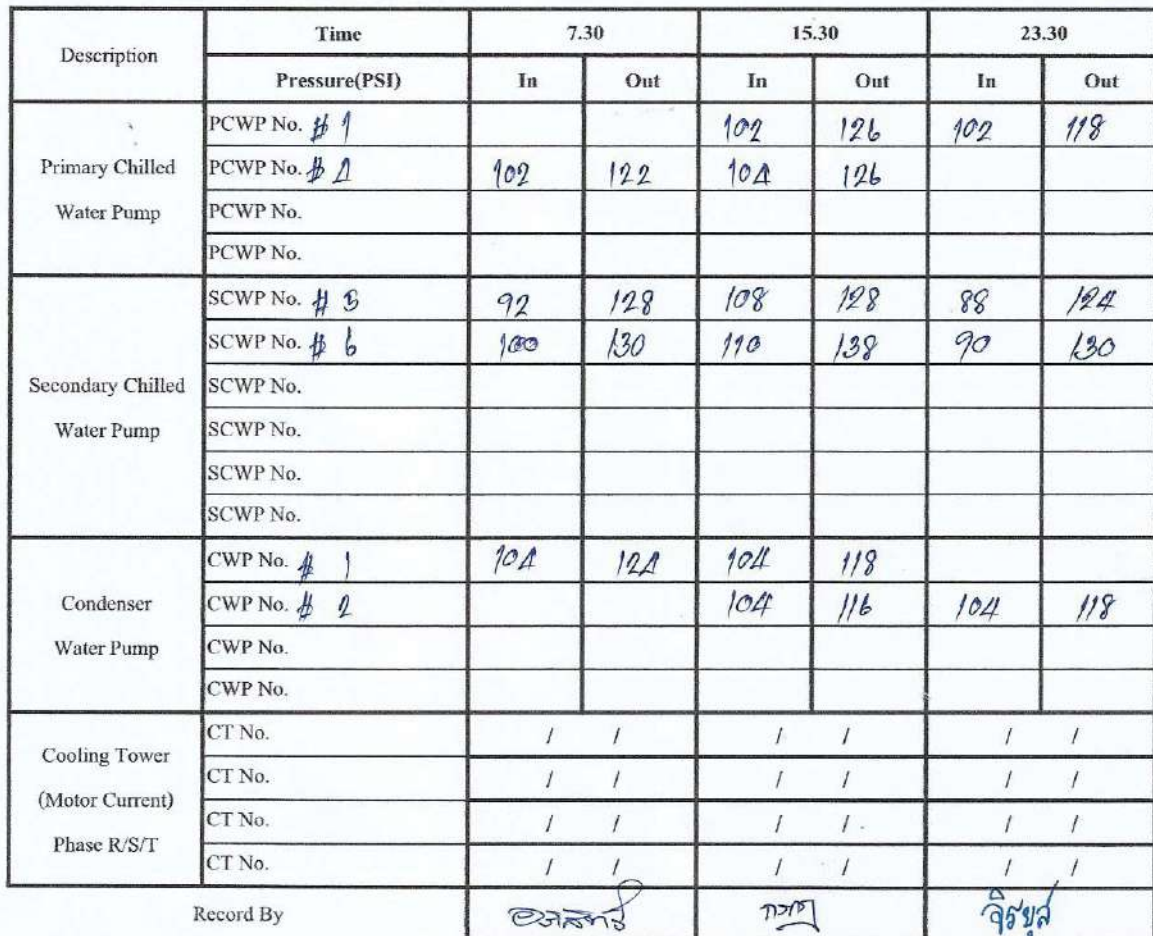 Description Time 7.30 15.30 23.30
Pressure(PSI) In Out In Out In Out
Primary Chilled Water Pump
PCWP No. # 1 102 126 102 118
PCWP No. # 4 102 122 104 126
PCWP No.
PCWP No.
Secondary Chilled Water Pump
SCWP No. # 5 92 128 108 128 88 124
SCWP No. # 6 100 130 110 138 90 130
SCWP No.
SCWP No.
SCWP No.
SCWP No.
Condenser Water Pump
CWP No. # 1 104 124 104 118
CWP No. # 2 104 116 104 118
CWP No.
CWP No.
Cooling Tower (Motor Current) Phase R/S/T
CT No. / / / / / /
CT No. / / / / / /
CT No. / / / / / /
CT No. / / / / / /
Record By จิรยุส